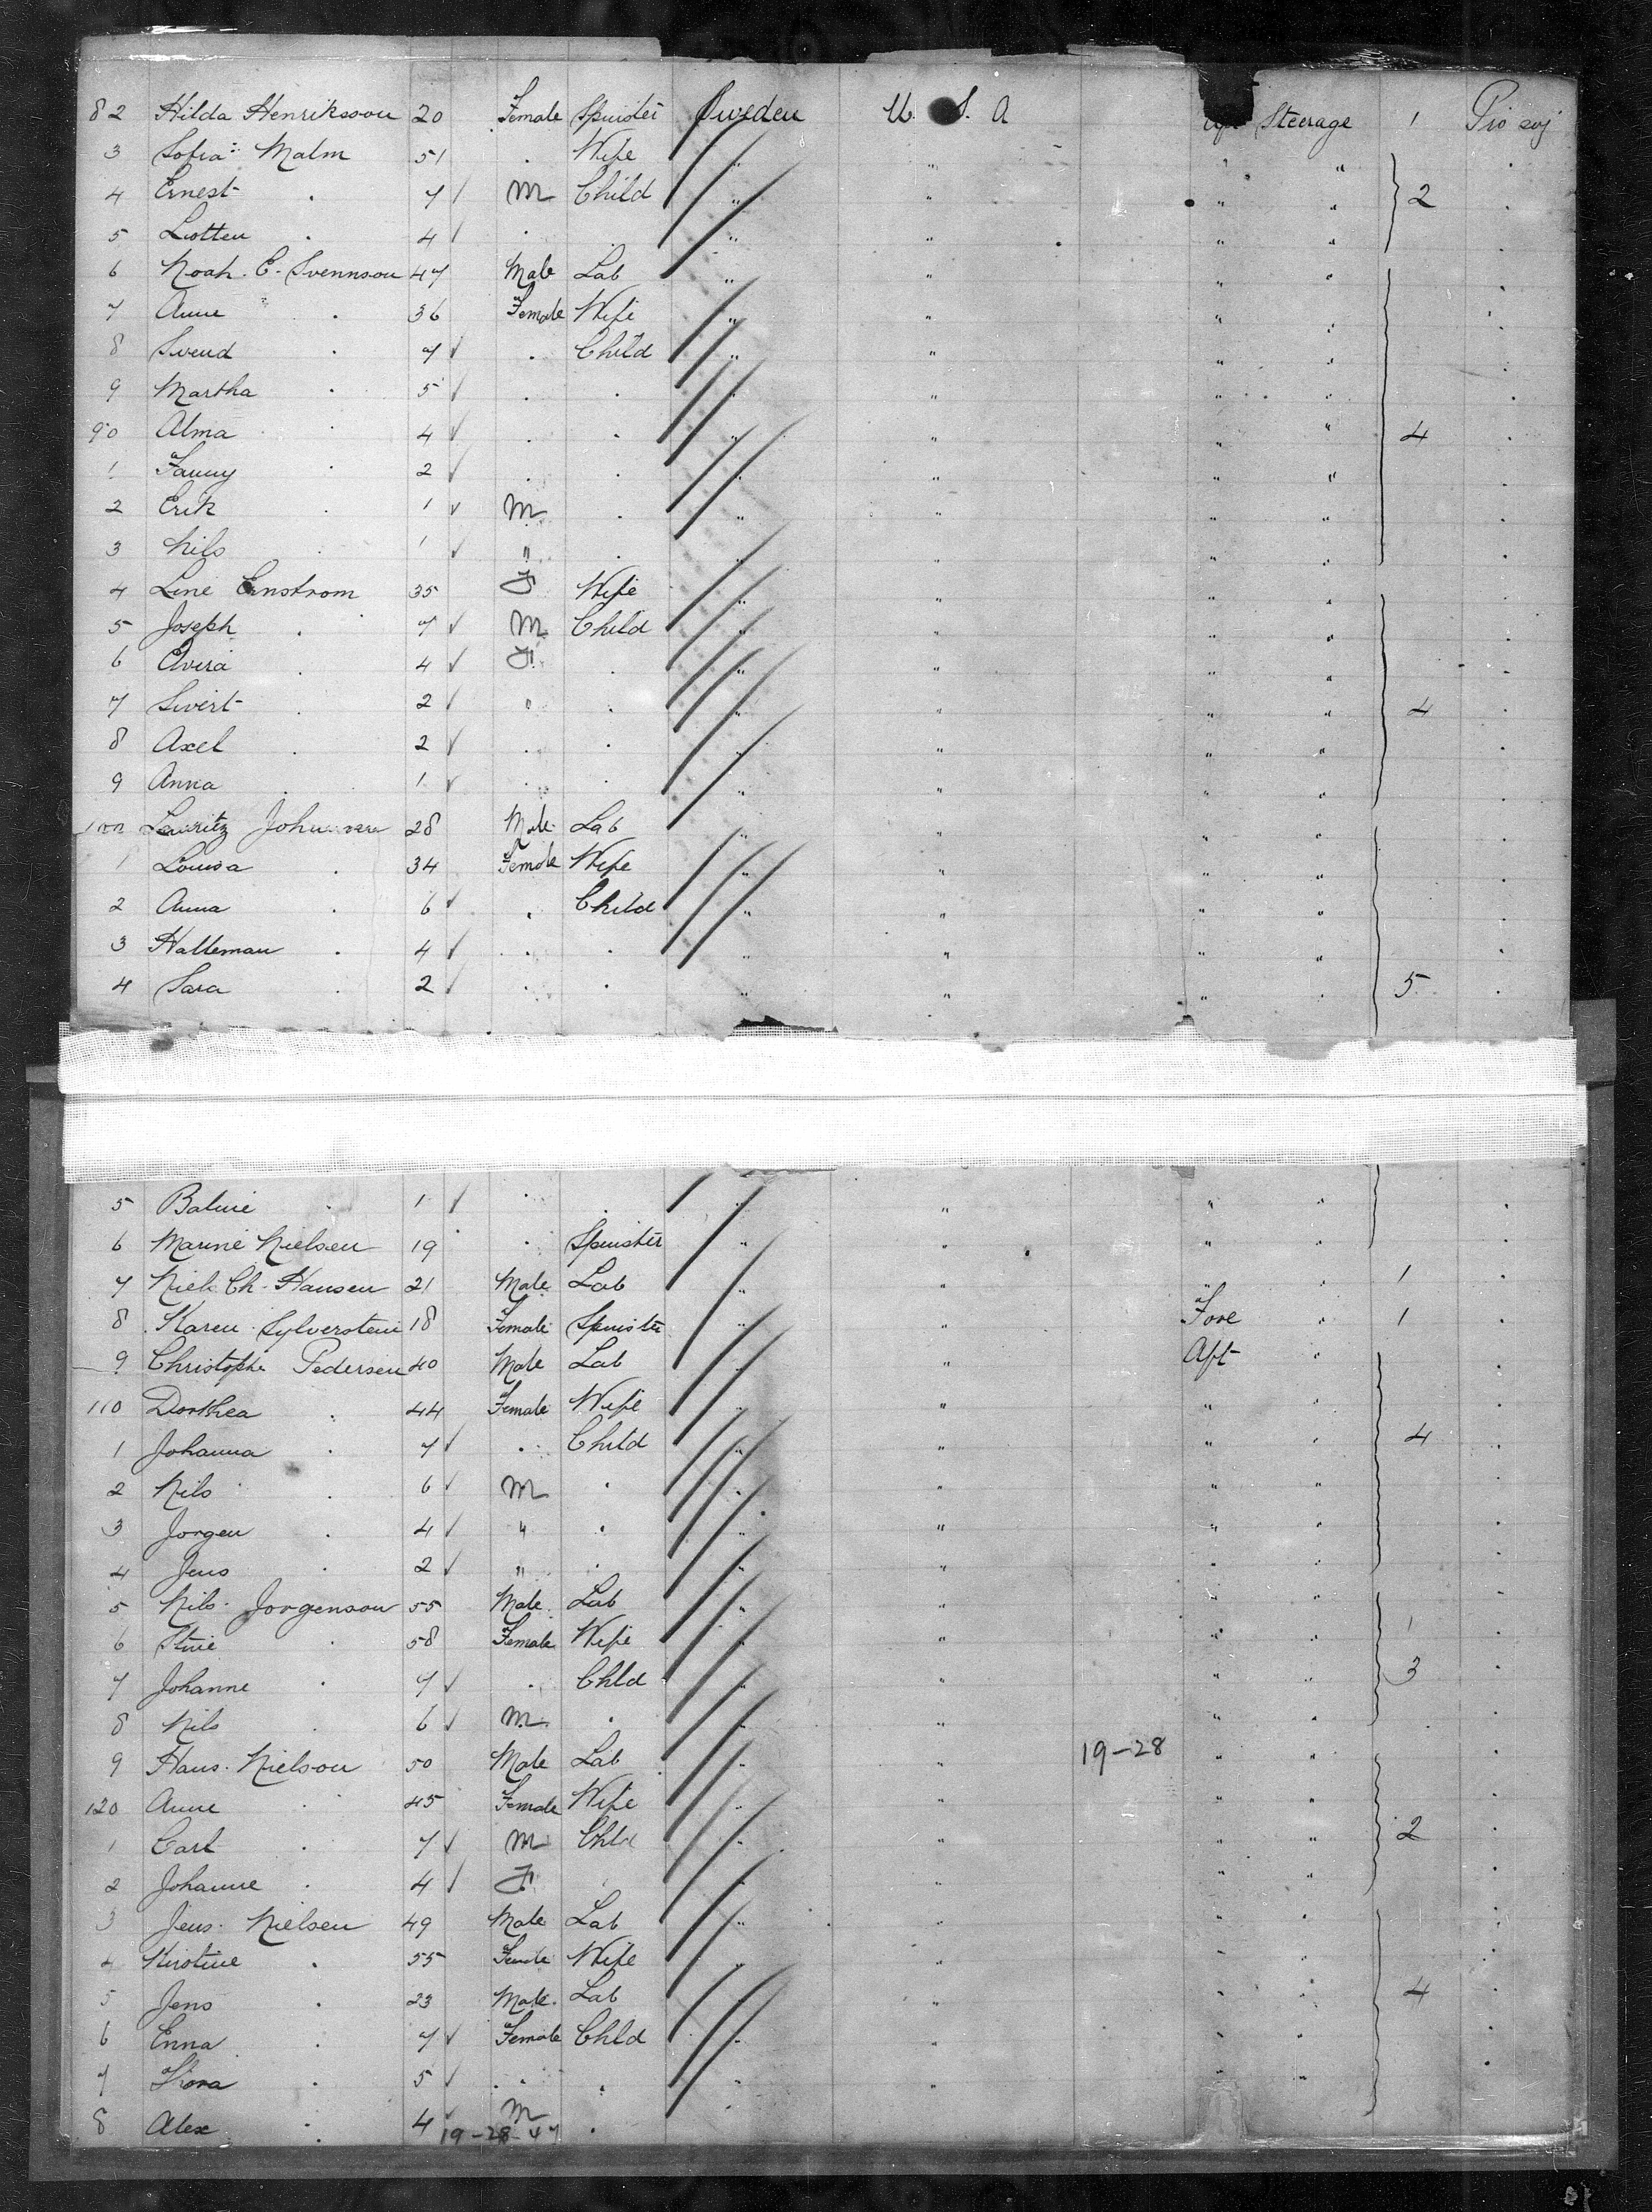 82 Hilda Henriksson 20 Female Spinster Sweden U. S. A Steerage 1 Pro soj
3 Sofia Malm 51 . Wife " " " "
4 Ernest . 7 M Child " " " " 2
5 Lotten . 4 . . " " " "
6 Noah. C. Svennson 47 Male Lab " " " "
7 Anne . 36 Female Wife " " " "
8 Svend . 7 . Child " " " "
9 Martha . 5 . . " " " "
90 Alma . 4 . . " " " " 4
1 Fanny . 2 . . " " " "
2 Erik . 1 M . " " " "
3 Nils . 1 " . " " " "
4 Line Ernstrom 35 F Wife " " " "
5 Joseph . 7 M Child " " " "
6 Elvira . 4 F . " " " "
7 Sivert . 2 " . " " " " 4
8 Axel . 2 . . " " " "
9 Anna . 1 . . " " " "
100 Lauritz 28 Male Lab " " " "
1 Louisa . 34 Female Wife " " " "
2 Anna . 6 . Child " " " "
3 Halleman . 4 . . " " " "
4 Sara . 2 . . " " " " 5
5 . 1 . . " " " "
6 Marine Nielsen 19 . Spinster " " " "
7 Niels Ch. Hansen 21 Male Lab " " " " 1
8 Karen Sylverstein 18 Female Spinster " " Fore " 1
9 Christophe Pedersen 40 Male Lab " " Aft "
110 Dorthea . 44 Female Wife " " " "
1 Johanna . 7 . Child " " " " 4
2 Nils . 6 M . " " " "
3 Jorgen . 4 " . " " " "
4 Jens . 2 " . " " " "
5 Nils. Jorgenson 55 Male Lab " " " "
6 Stine . 58 Female Wife " " " " 1
7 Johanne . 7 . Chld " " " " 3
8 Nils . 6 M . " " " "
9 Hans. Nielson 50 Male Lab " " 19-28 " "
120 Anne . 45 Female Wife " " " "
1 Carl . 7 M Chld " " " " 2
2 Johanne . 4 F . " " " "
3 Jens. Nielsen 49 Male Lab " " " "
4 Kirstine . 55 Female Wife " " " "
5 Jens . 23 Male. Lab " " " " 4
6 Enna . 7 Female Chld " " " "
7 Thora . 5 . . " " " "
8 Alex . 4 M .
19-28-47